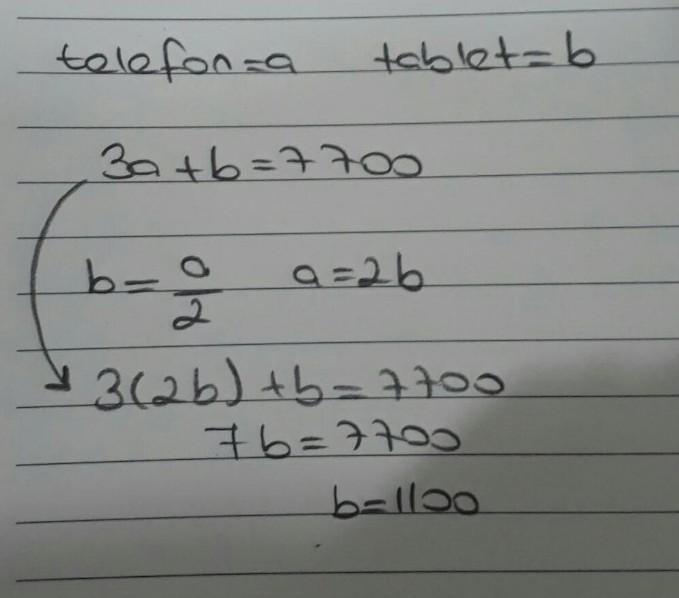 telefon=a tablet=b
3a+b=7700
b=a/2 a=2b
3(2b)+b=7700
7b=7700
b=1100